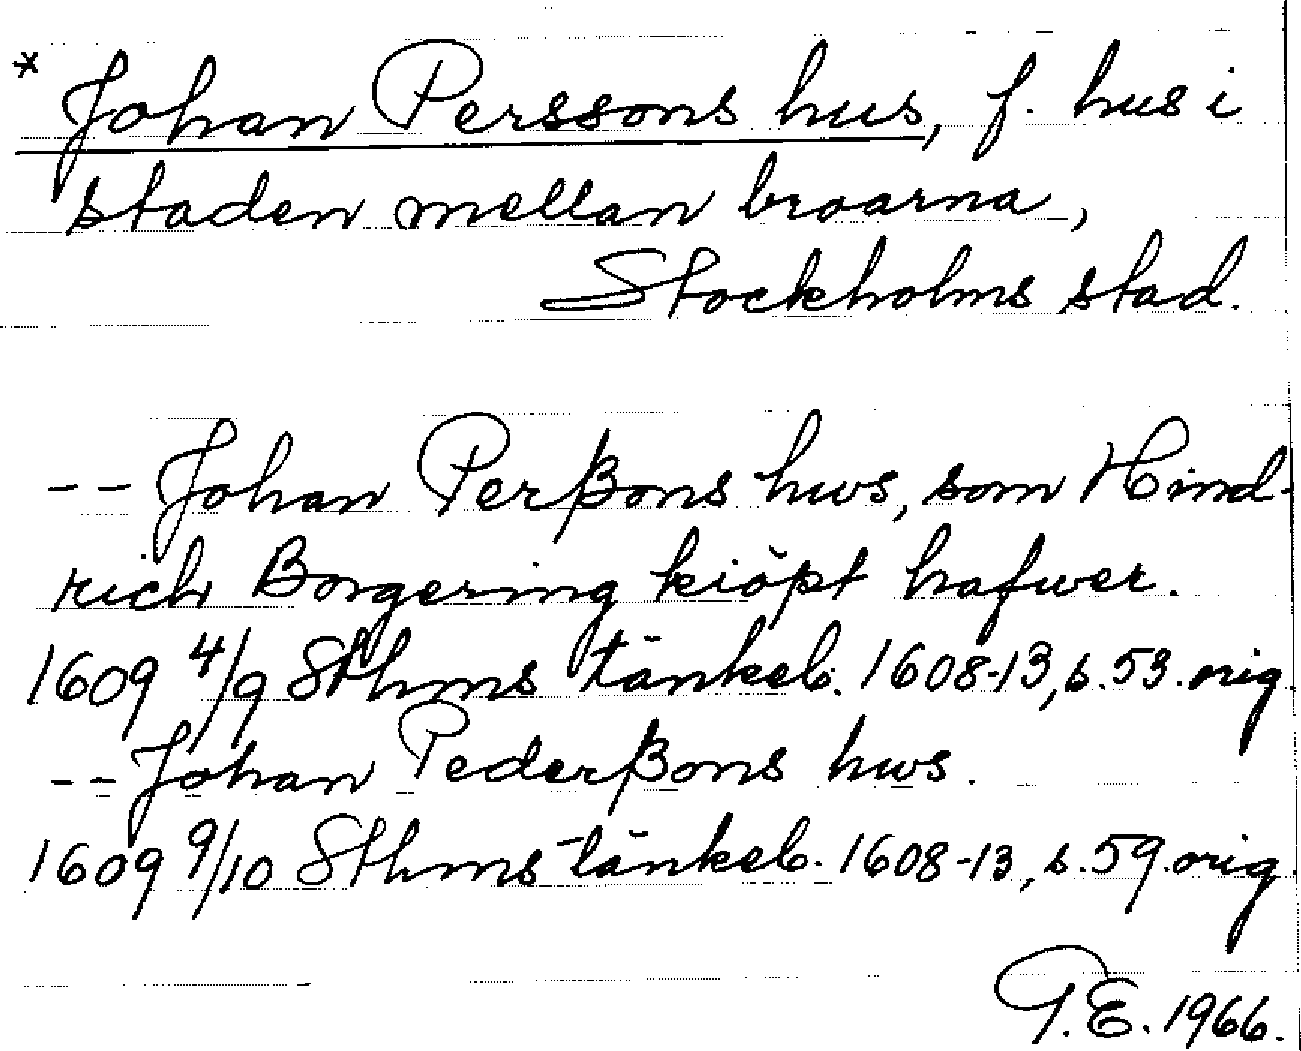 * Johan Perssons hus, f. hus i
staden mellan broarna,
Stockholms stad.
-- Johan Perßons hws, som Hind-
rich Borgering kiöpt hafwer.
1609 4/9 Sthms tänkeb. 1608-13, s. 53. orig.
-- Johan Pederßons hws.
1609 9/10 Sthms tänkeb. 1608-13, s. 59. orig.
G.E. 1966.